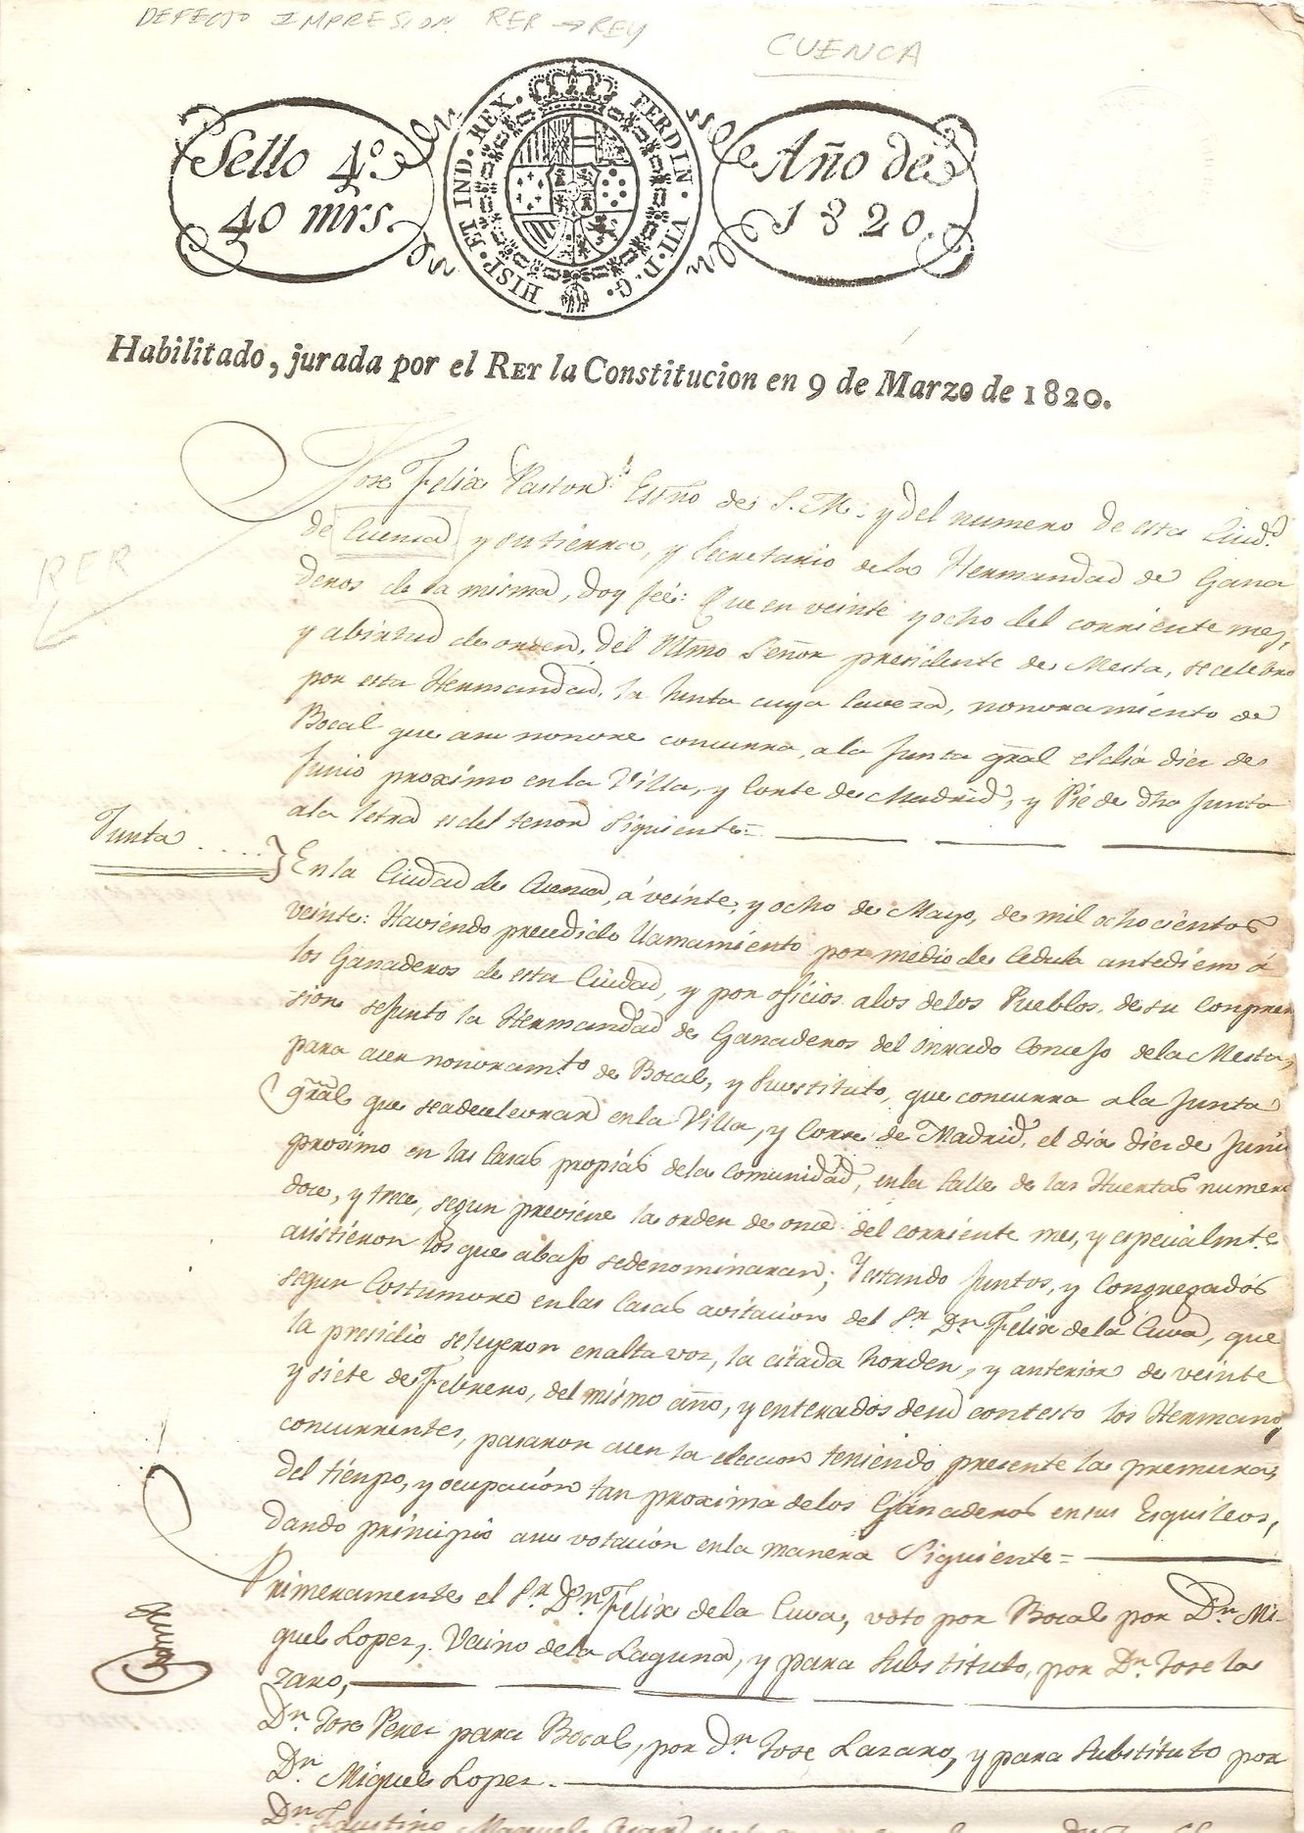 DEFECTO IMPRESION RER → REY
CUENCA
Sello 4º
40 mrs.
HISP. ET IND. REX. FERDIN. VII. D. G.
Año de
1820.
Habilitado, jurada por el RER la Constitucion en 9 de Marzo de 1820.
RER
Jose Felix Pastor Essno de S. M. y del numero de esta Ciudd.
de Cuenca y su tierra, y Secretario de la Hermandad de Gana
deros de la misma, doy feé: Que en veinte y ocho del corriente mes,
y abirtud de orden, del Iltmo Señor presidente de Mesta, se celebro
por esta Hermandad, la Junta cuya Caveza, nonvramiento de
Bocal que asu nonvre concurra, a la Junta gral el dia diez de
Junio proximo en la Villa, y Corte de Madrid, y Pie de dha Junta
ala letra es del tenor Siguiente=
Junta
En la Ciudad de Cuenca, á veinte, y ocho de Mayo, de mil ochocientos
veinte: Haviendo precedido llamamiento por medio de Cedula antediem á
los Ganaderos de esta Ciudad, y por oficios alos delos Pueblos, de su Conpren
sion se junto la Hermandad de Ganaderos del Onrrado Concejo dela Mesta,
para acer nonvramto de Bocal, y Sustituto, que concurra a la Junta
gral que seadecelevrar en la Villa, y Corte de Madrid, el dia diez de Junio
prosimo en las Casas propias dela Comunidad, en la Calle de las Huertas numero
doce, y trece, segun previene la orden de once del corriente mes, y especialmte
asistieron los que abajo sedenominaran; Y estando Juntos, y Congregados
segun Costumvre en las Casas avitacion del Sr. Dn. Felix de la Cuva, que
la presidio se leyeron en alta voz, la citada horden, y anterior de veinte
y siete de Febrero, del mismo año, y enterados desu contesto los Hermanos
concurrentes, pasaron acer la eleccion teniendo presente la premura,
del tienpo, y ocupacion tan proxima delos Ganaderos en sus Esquileos,
dando principio asu votacion en la manera Siguiente=
Primeramente el Sr. Dn. Felix de la Cuva, voto por Bocal por Dn. Mi-
guel Lopez, Vecino de la Laguna, y para Substituto, por Dn. Jose La
zaro,
Dn. Jose Perez para Bocal, por dn. Jose Lazaro, y para Substituto por
Dn. Miguel Lopez.
Dn. Faustino